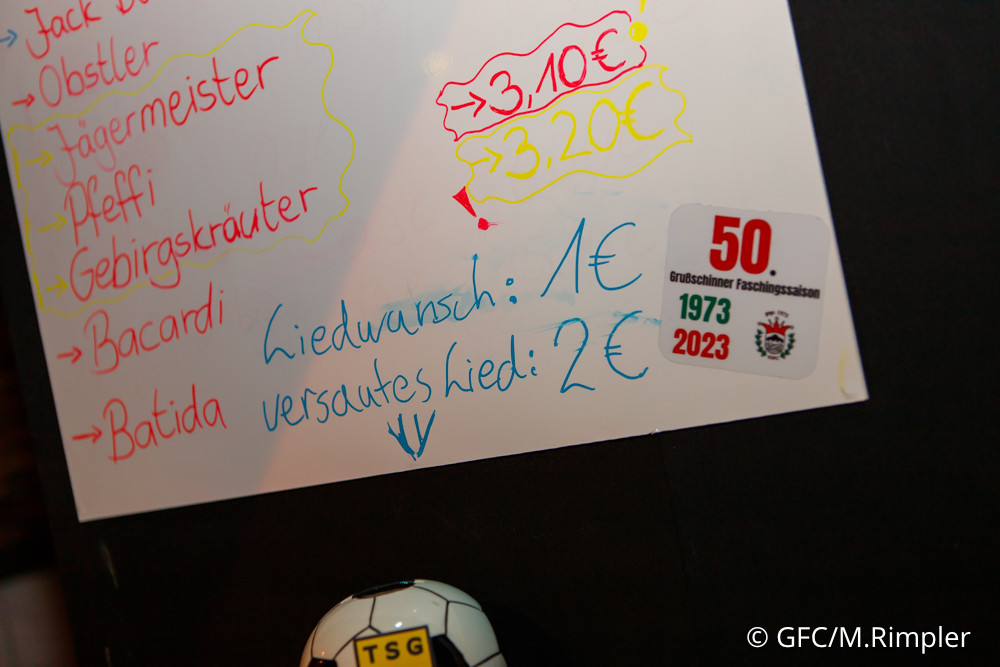 → Jack
→ Obstler
→ Jägermeister
→ Pfeffi
→ Gebirgskräuter
→ Bacardi
→ Batida
→ 3,10€
→ 3,20€
!
Liedwunsch: 1€
versautes Lied: 2€
50.
Grußschinner Faschingssaison
1973
2023
TSG
© GFC/M.Rimpler